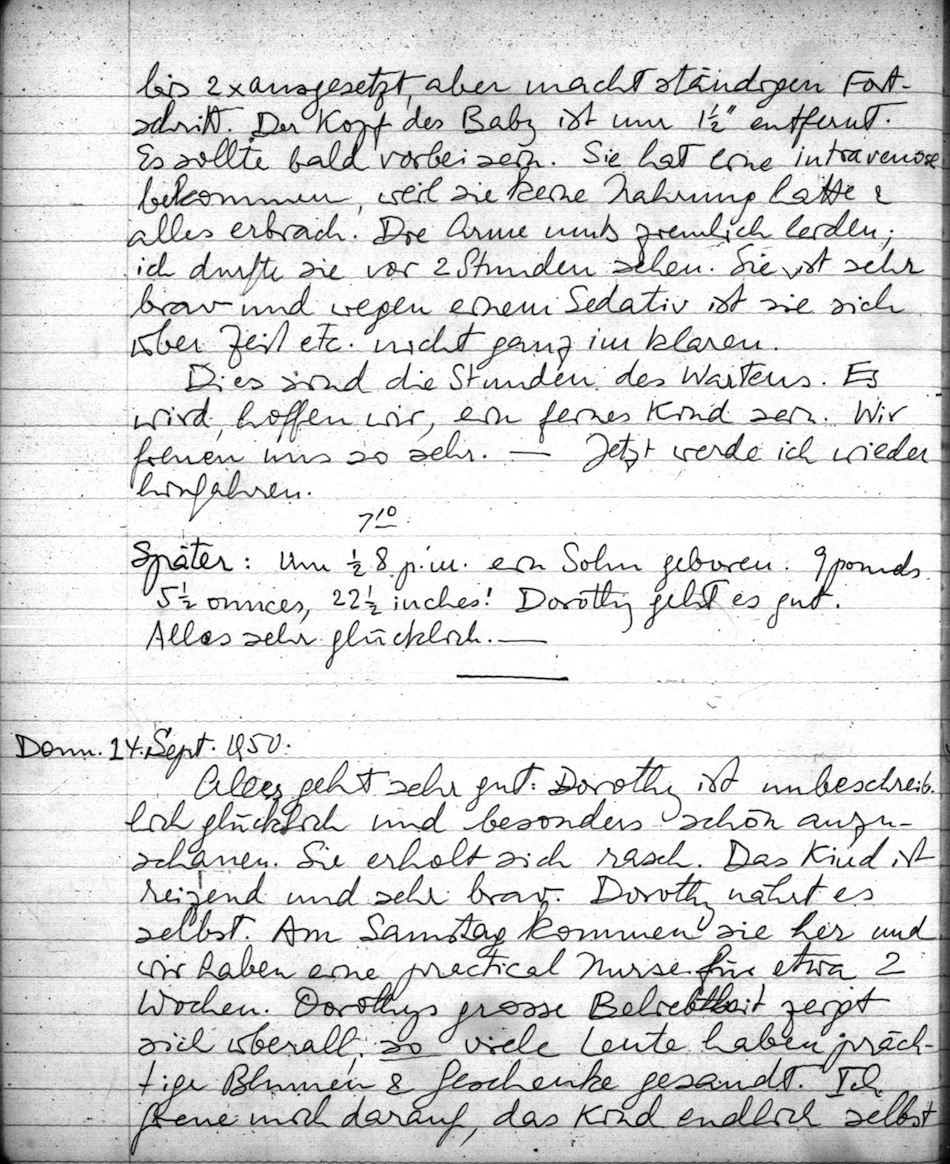 bis 2x ausgesetzt, aber macht ständigen Fort-
schritt. Der Kopf des Baby ist nur 1½" entfernt.
Es sollte bald vorbei sein. Sie hat eine intravenose
bekommen, weil sie keine Nahrung hatte &
alles erbrach. Die Arme muß ziemlich leiden;
ich durfte sie vor 2 Stunden sehen. Sie ist sehr
brav und wegen einem Sedativ ist sie sich
über Zeit etc. nicht ganz im klaren.
Dies sind die Stunden des Wartens. Es
wird, hoffen wir, ein feines Kind sein. Wir
freuen uns so sehr. — Jetzt werde ich wieder
hinfahren.
7¹⁰
Später: Um ½ 8 p.m. ein Sohn geboren. 9 pounds
5½ ounces, 22½ inches! Dorothy geht es gut.
Alles sehr glücklich. —
Donn. 14. Sept. 1950.
Alles geht sehr gut. Dorothy ist unbeschreib-
lich glücklich und besonders schön anzu-
schauen. Sie erholt sich rasch. Das Kind ist
reizend und sehr brav. Dorothy nährt es
selbst. Am Samstag kommen sie her und
wir haben eine practical Nurse für etwa 2
Wochen. Dorothys grosse Beliebtheit zeigt
sich überall; so viele Leute haben präch-
tige Blumen & Geschenke gesandt. Ich
freue mich darauf, das Kind endlich selbst